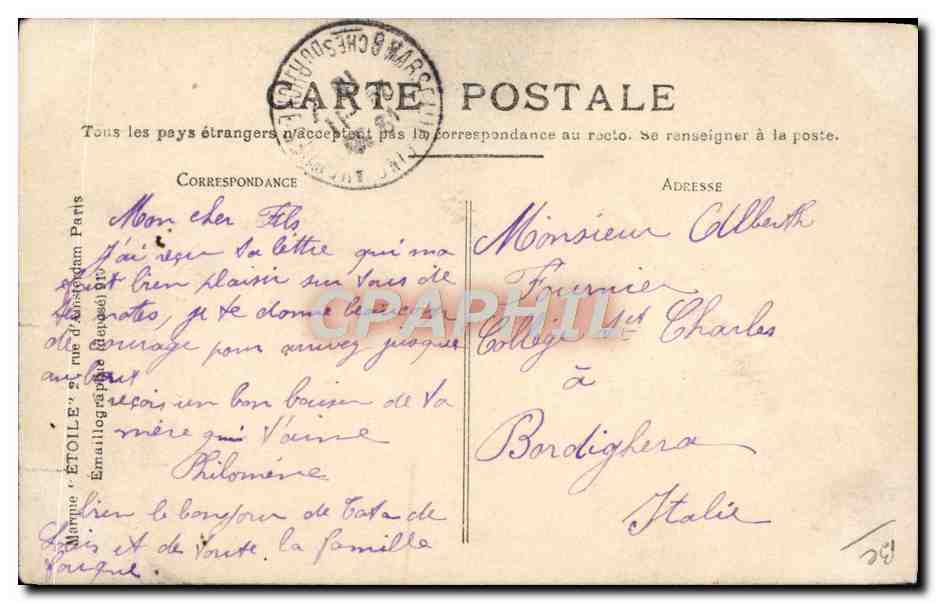 CARTE POSTALE
Tous les pays étrangers n'acceptent pas la correspondance au recto. Se renseigner à la poste.
CORRESPONDANCE
Mon cher Fils
J'ai reçu ta lettre qui ma
bien plaisir sur tous de
tes notes, je te donne beaucoup
de courage pour arrivez jusque
au bout
reçois un bon baiser de ta
mère qui t'aime
Philomène
bien le bonjour de tata de
Louis et de toute la famille
ADRESSE
Monsieur Alberth
Fournier
College St Charles
à
Bordighera
Italie
Marque "ETOILE" rue d'Amsterdam Paris
Emaillographie (déposé)
CPAPHIL